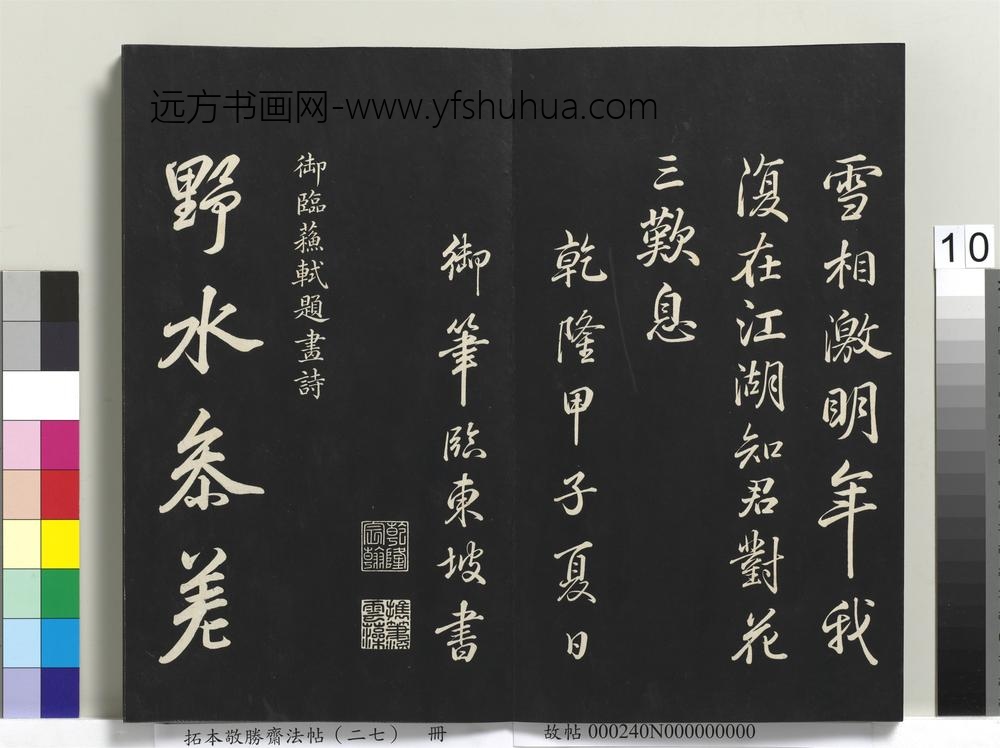 远方书画网-www.yfshuhua.com
雪相激明年我
復在江湖知君對花
三歎息
乾隆甲子夏日
御筆臨東坡書
乾隆
宸翰
御臨蘇軾題畫詩
野水參差
10
拓本敬勝齋法帖（二七） 冊
故帖 000240N000000000